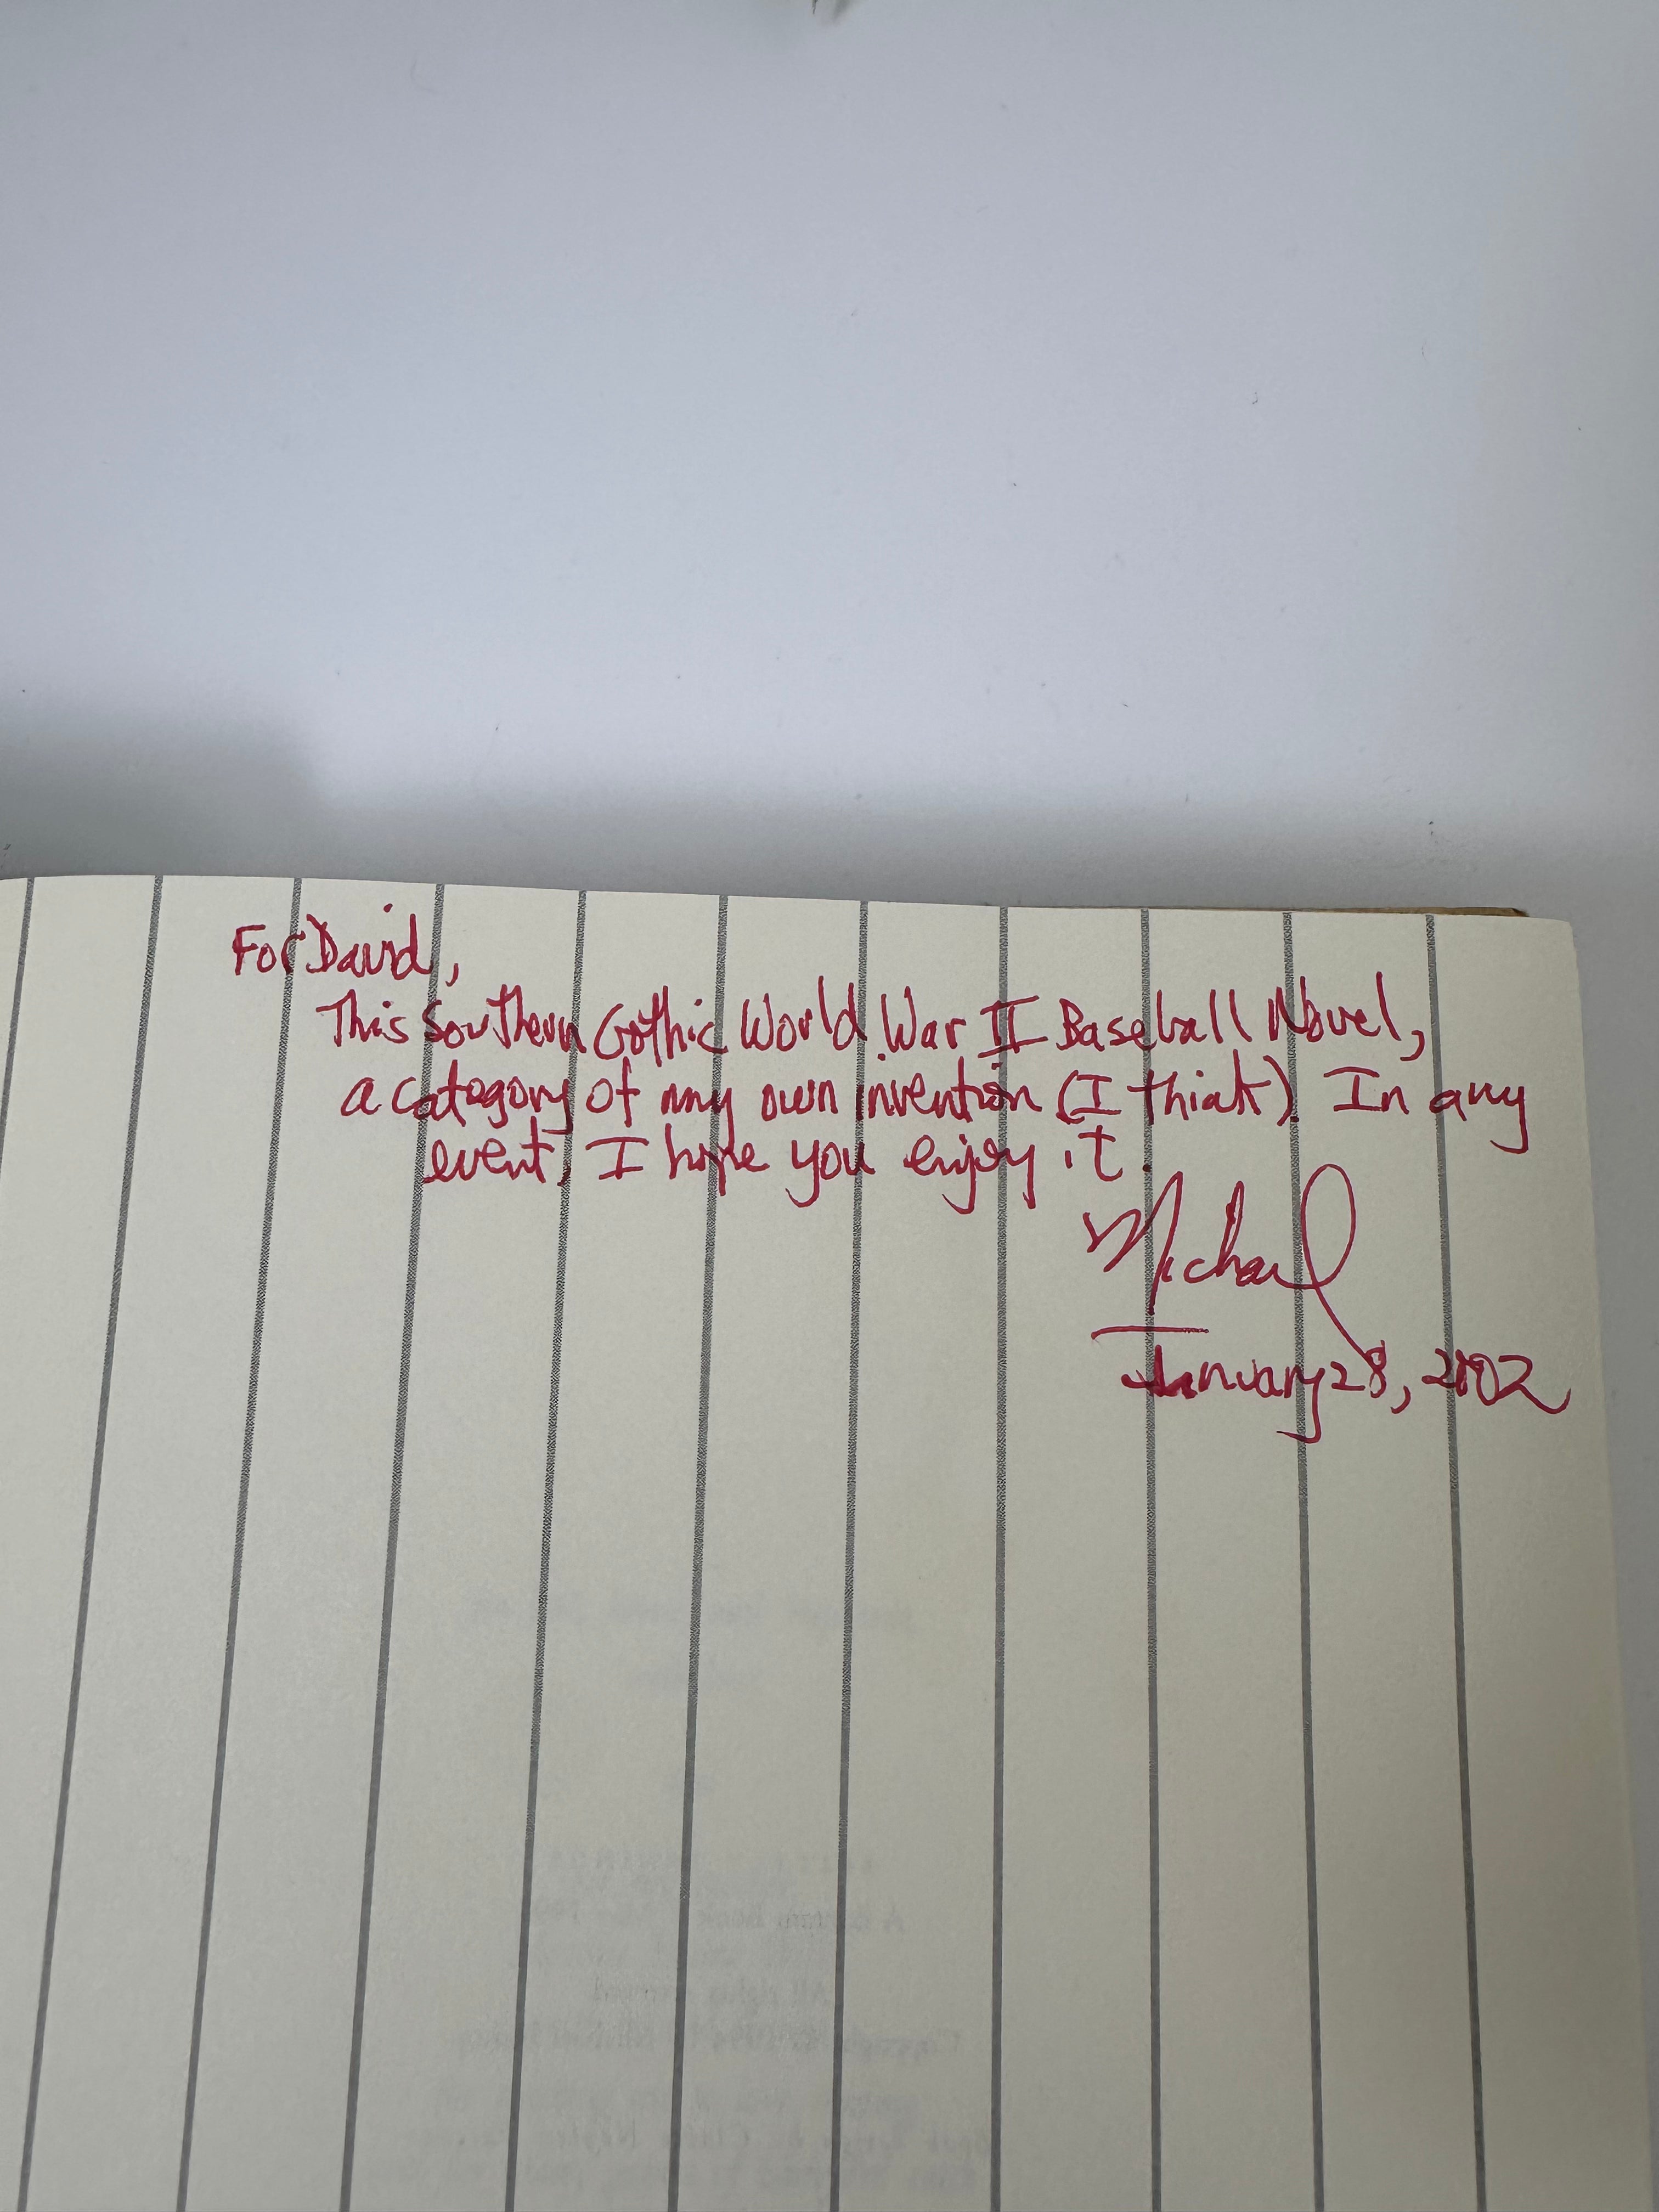 For David,
This Southern Gothic World War II Baseball Novel,
a catagory of my own invention (I think). In any
event, I hope you enjoy it.
Michael
January 28, 2002